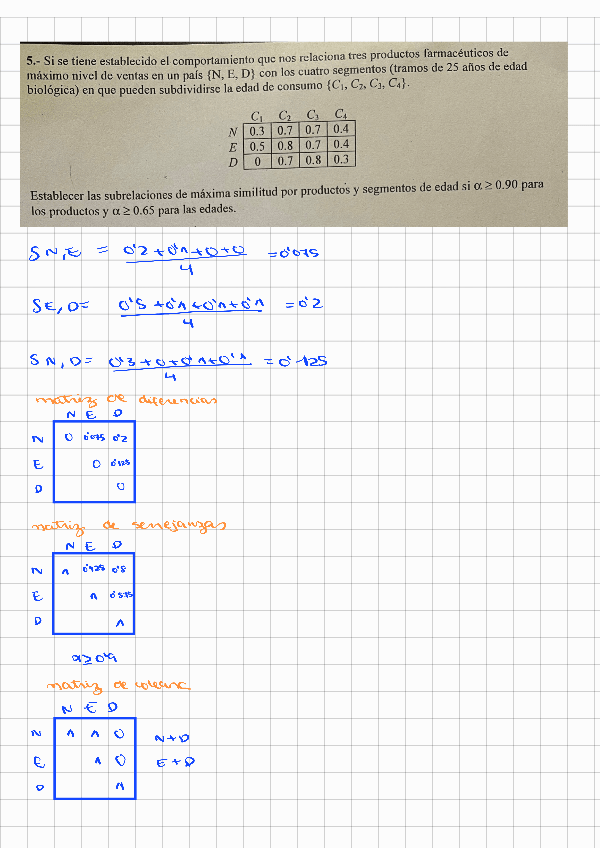 5.- Si se tiene establecido el comportamiento que nos relaciona tres productos farmacéuticos de
máximo nivel de ventas en un país {N, E, D} con los cuatro segmentos (tramos de 25 años de edad
biológica) en que pueden subdividirse la edad de consumo {C₁, C₂, C₃, C₄}.
C₁ C₂ C₃ C₄
N 0.3 0.7 0.7 0.4
E 0.5 0.8 0.7 0.4
D 0 0.7 0.8 0.3
Establecer las subrelaciones de máxima similitud por productos y segmentos de edad si α ≥ 0.90 para
los productos y α ≥ 0.65 para las edades.
S N,E = (0'2 + 0'1 + 0 + 0) / 4 = 0'075
S E,D = (0'5 + 0'1 + 0'1 + 0'1) / 4 = 0'2
S N,D = (0'3 + 0 + 0'1 + 0'1) / 4 = 0'125
matriz de diferencias
N E D
N 0 0'075 0'2
E 0 0'125
D 0
matriz de semejanzas
N E D
N 1 0'925 0'8
E 1 0'875
D 1
α ≥ 0'9
matriz de
N E D
N 1 1 0 N + D
E 1 0 E + D
D 1